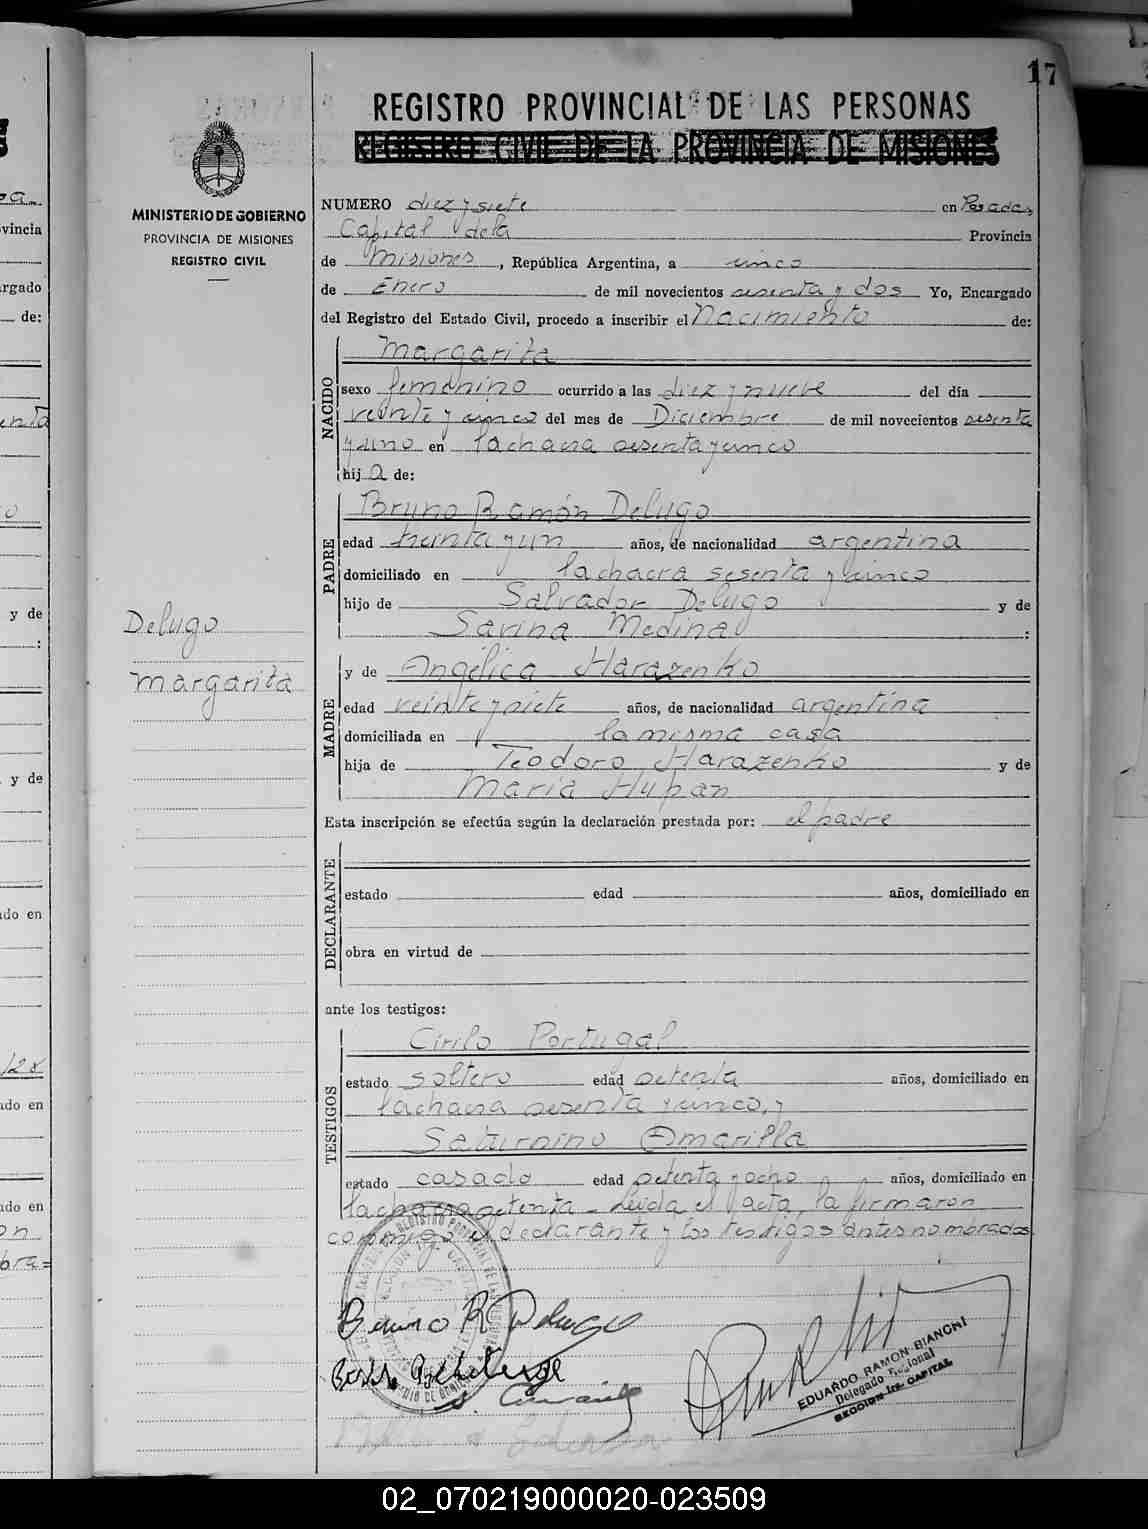 17
REGISTRO PROVINCIAL DE LAS PERSONAS
REGISTRO CIVIL DE LA PROVINCIA DE MISIONES
MINISTERIO DE GOBIERNO
PROVINCIA DE MISIONES
REGISTRO CIVIL
NUMERO diez y siete en Posadas
Capital dela Provincia
de Misiones, República Argentina, a cinco
de Enero de mil novecientos sesenta y dos Yo, Encargado
del Registro del Estado Civil, procedo a inscribir el Nacimiento de:
NACIDO
Margarita
sexo femenino ocurrido a las diez y nueve del día
veinte y cinco del mes de Diciembre de mil novecientos sesenta
y uno en la chacra sesenta y cinco
hij a de:
PADRE
Bruno Ramón Delugo
edad treinta y un años, de nacionalidad argentina
domiciliado en la chacra sesenta y cinco
hijo de Salvador Delugo y de
Savina Medina :
Delugo
Margarita
MADRE
y de Angélica Harazenko
edad veinte y siete años, de nacionalidad argentina
domiciliada en la misma casa
hija de Teodoro Harazenko y de
Maria Hupan
Esta inscripción se efectúa según la declaración prestada por: el padre
DECLARANTE
estado edad años, domiciliado en
obra en virtud de
ante los testigos:
TESTIGOS
Cirilo Portugal
estado soltero edad setenta años, domiciliado en
la chacra sesenta y cinco, y
Saturnino Amarilla
estado casado edad setenta y ocho años, domiciliado en
la chacra setenta - Leída el acta, la firmaron
conmigo el declarante y los testigos antes nombrados
Bruno R Delugo
EDUARDO RAMON BIANCHI
Delegado Regional
SECCION 1ra. CAPITAL
02_070219000020-023509